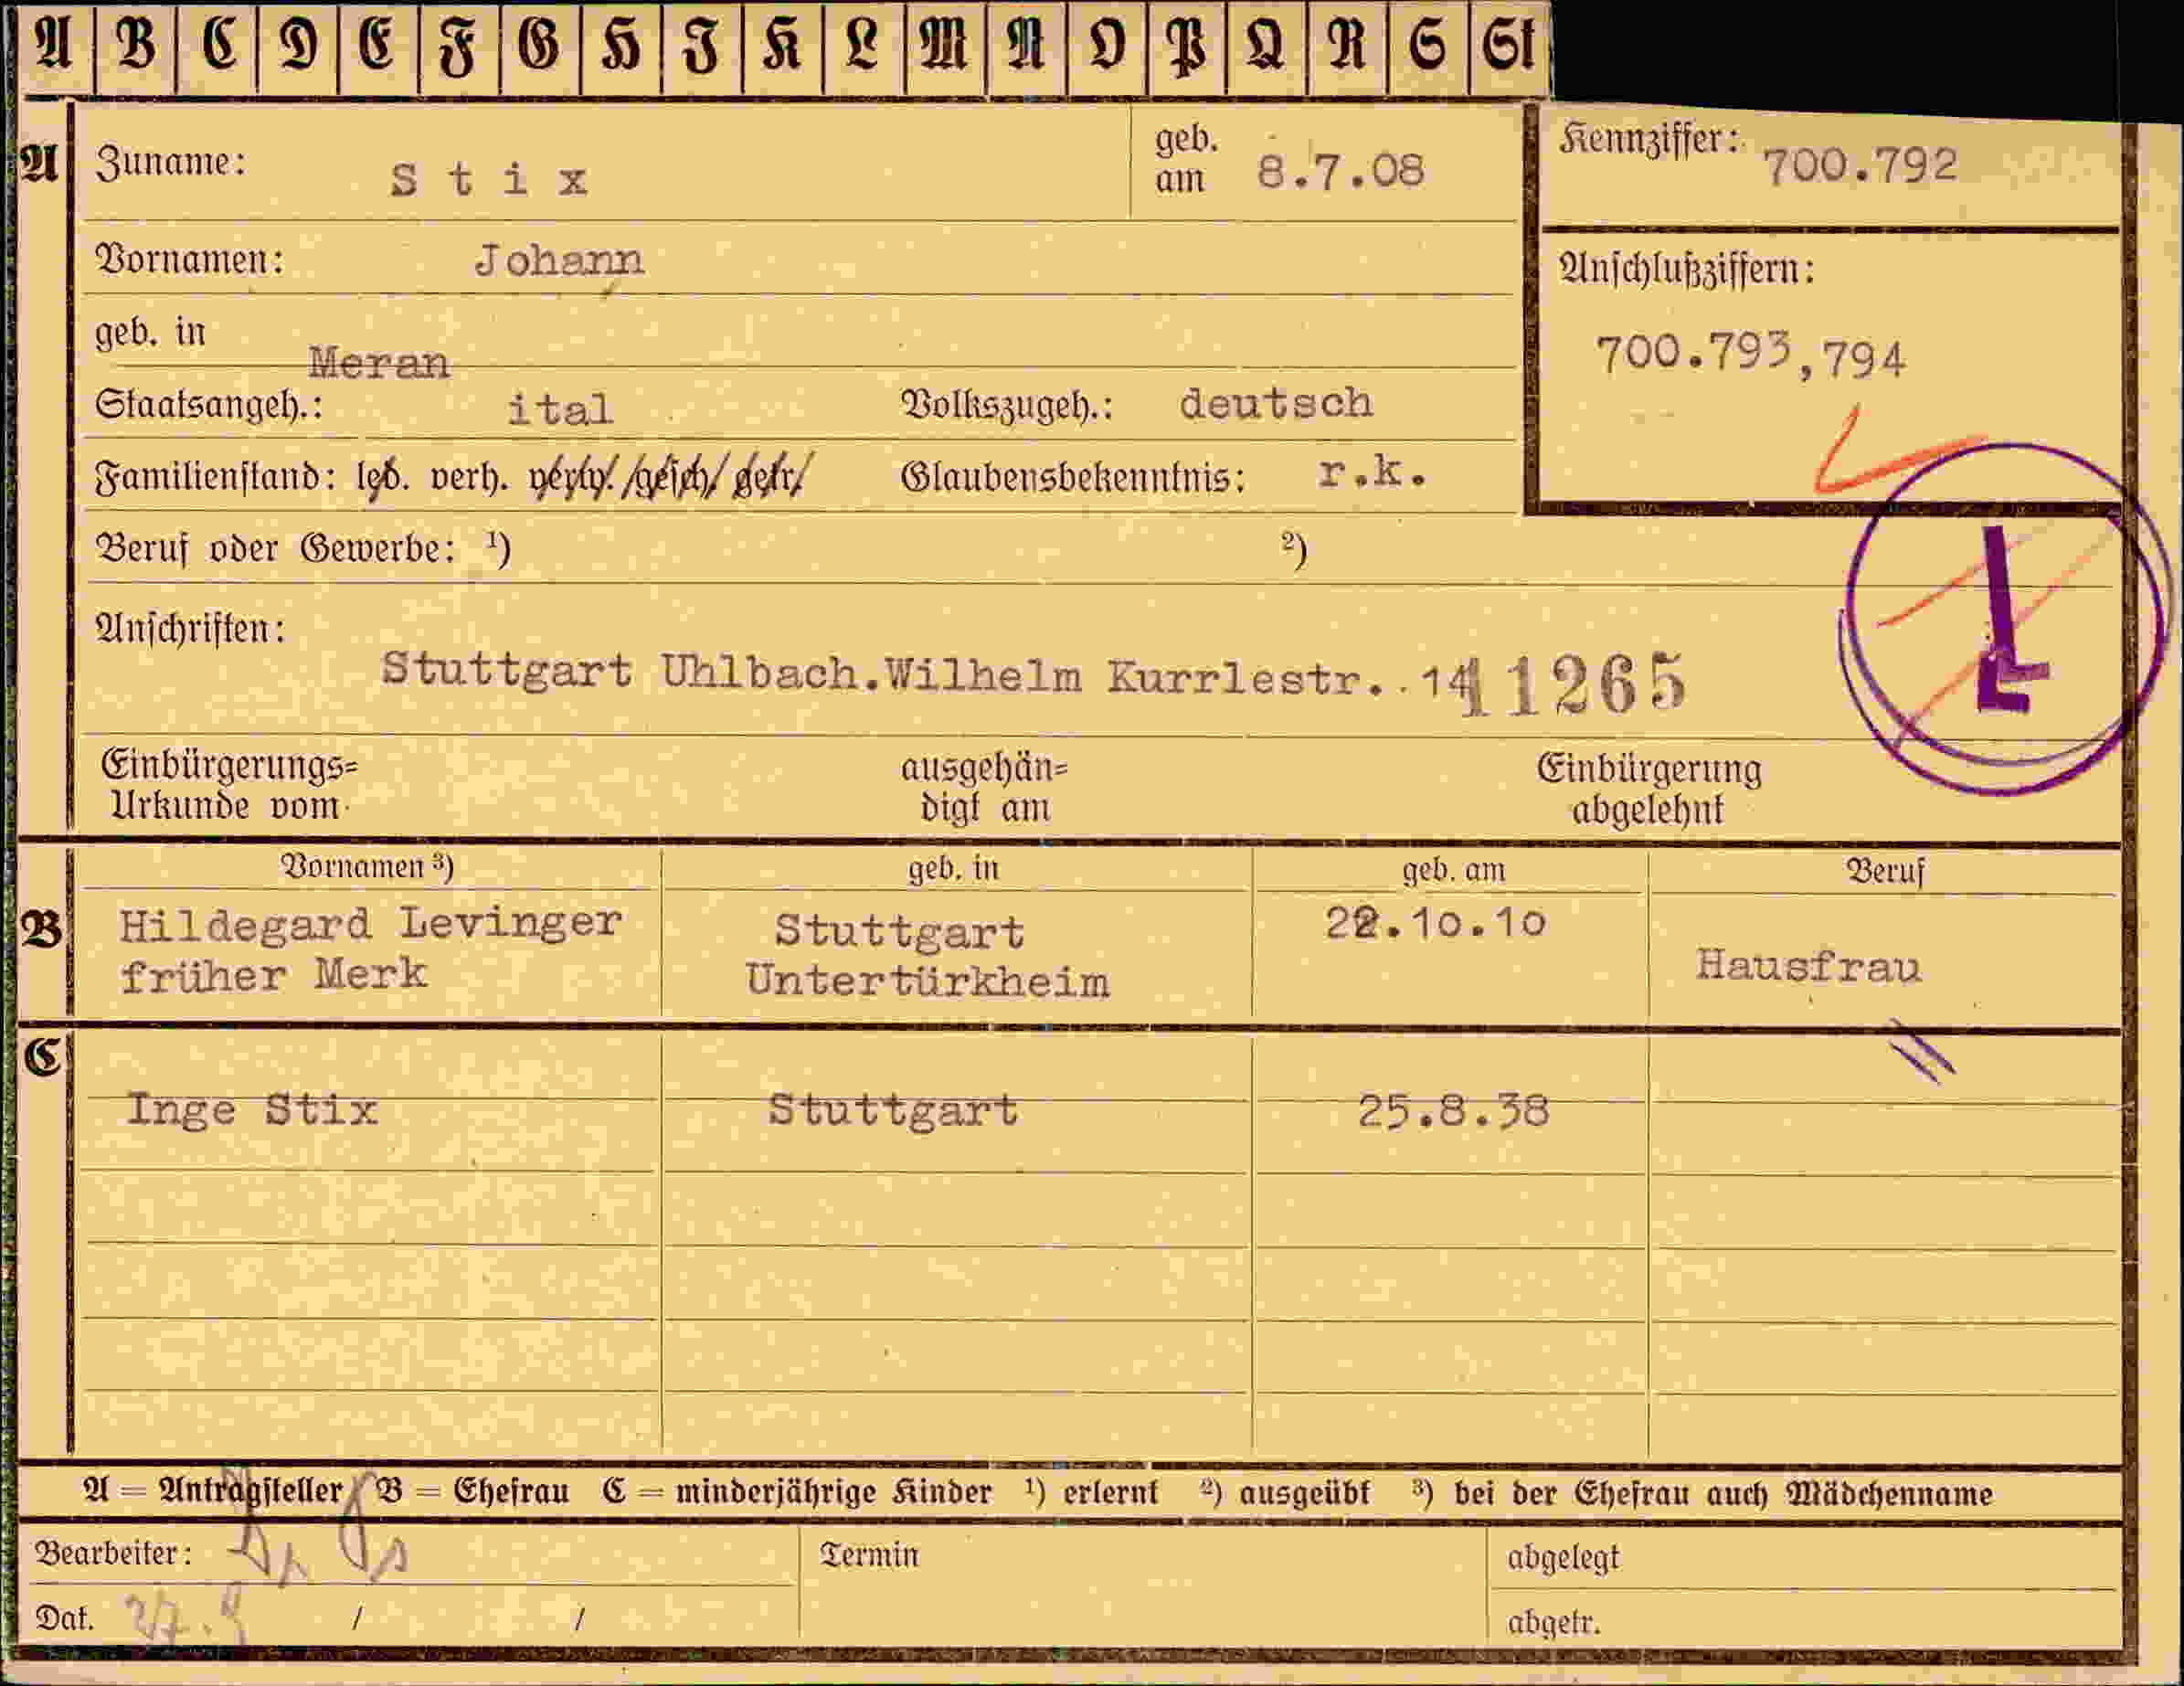 A B C D E F G H I K L M N O P Q R S St
A Zuname: Stix geb. am 8.7.08
Kennziffer: 700.792
Vornamen: Johann
Anschlußziffern:
700.793,794
geb. in Meran
Staatsangeh.: ital Volkszugeh.: deutsch
Familienstand: led. verh. verw. gesch. getr. Glaubensbekenntnis: r.k.
Beruf oder Gewerbe: 1) 2)
L
Anschriften:
Stuttgart Uhlbach.Wilhelm Kurrlestr. 14 11265
Einbürgerungs= Urkunde vom
ausgehän= digt am
Einbürgerung abgelehnt
Vornamen 3) geb. in geb. am Beruf
B Hildegard Levinger Stuttgart 22.10.10
früher Merk Untertürkheim Hausfrau
C
Inge Stix Stuttgart 25.8.38
A = Antragsteller B = Ehefrau C = minderjährige Kinder 1) erlernt 2) ausgeübt 3) bei der Ehefrau auch Mädchenname
Bearbeiter: Termin abgelegt
Dat. 27.9 / / abgetr.